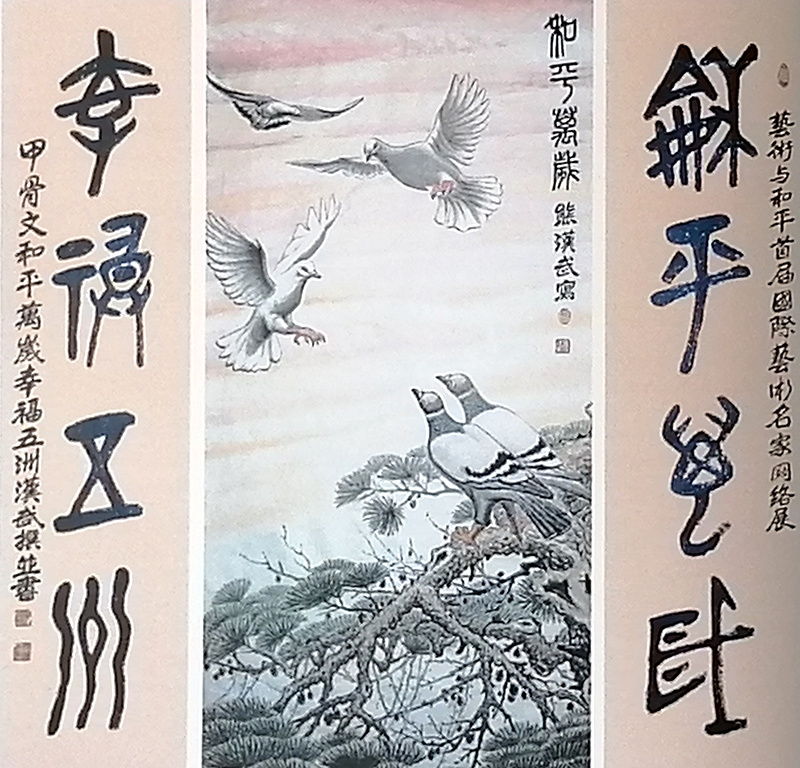 藝術与和平首届國際藝術名家网络展
龢平萬歲
和平萬歲 熊漢武寫
幸福五州
甲骨文和平萬歲幸福五洲漢武撰並書